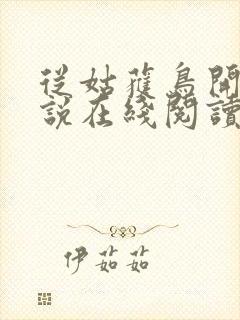 從姑蘿鳥開
說在綫閱讀
伊茹茹